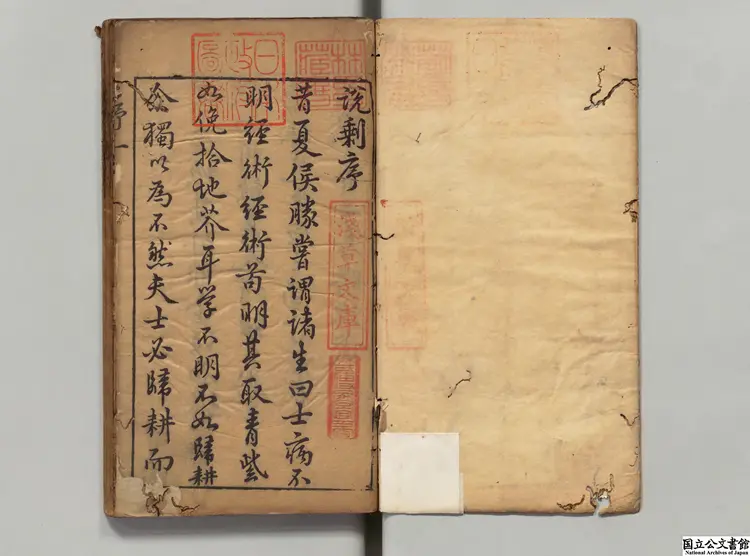 説剩序
昔夏侯勝嘗謂諸生曰士病不
明經術經術苟明其取青紫
如俛拾地芥耳学不明不如歸耕
余獨以為不然夫士必歸耕而
序一
日本政府圖書
淺草文庫
国立公文書館
National Archives of Japan